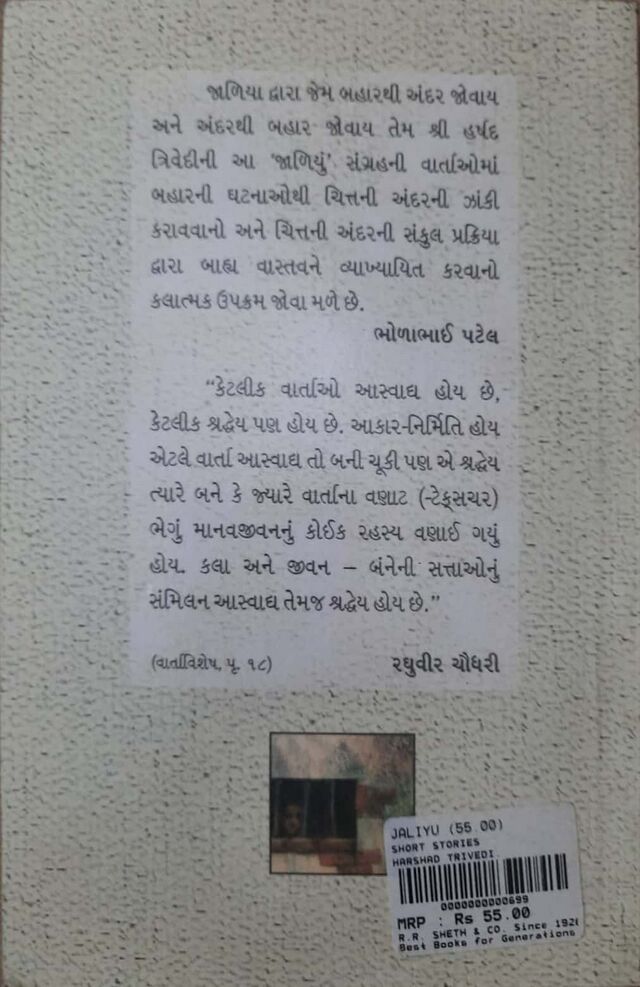 જાળિયા દ્વારા જેમ બહારથી અંદર જોવાય
અને અંદરથી બહાર જોવાય તેમ શ્રી હર્ષદ
ત્રિવેદીની આ ‘જાળિયું’ સંગ્રહની વાર્તાઓમાં
બહારની ઘટનાઓથી ચિત્તની અંદરની ઝાંકી
કરાવવાનો અને ચિત્તની અંદરની સંકુલ પ્રક્રિયા
દ્વારા બાહ્ય વાસ્તવને વ્યાખ્યાયિત કરવાનો
કલાત્મક ઉપક્રમ જોવા મળે છે.
ભોળાભાઈ પટેલ
“કેટલીક વાર્તાઓ આસ્વાદ્ય હોય છે,
કેટલીક શ્રદ્ધેય પણ હોય છે. આકાર-નિર્મિતિ હોય
એટલે વાર્તા આસ્વાદ્ય તો બની ચૂકી પણ એ શ્રદ્ધેય
ત્યારે બને કે જ્યારે વાર્તાના વણાટ (-ટેક્સચર)
ભેગું માનવજીવનનું કોઈક રહસ્ય વણાઈ ગયું
હોય. કલા અને જીવન – બંનેની સત્તાઓનું
સંમિલન આસ્વાદ્ય તેમજ શ્રદ્ધેય હોય છે.”
(વાર્તાવિશેષ, પૃ. ૧૮) રઘુવીર ચૌધરી
JALIYU (55.00)
SHORT STORIES
HARSHAD TRIVEDI
0000000000699
MRP : Rs 55.00
R.R. SHETH & CO. Since 192
Best Books for Generations